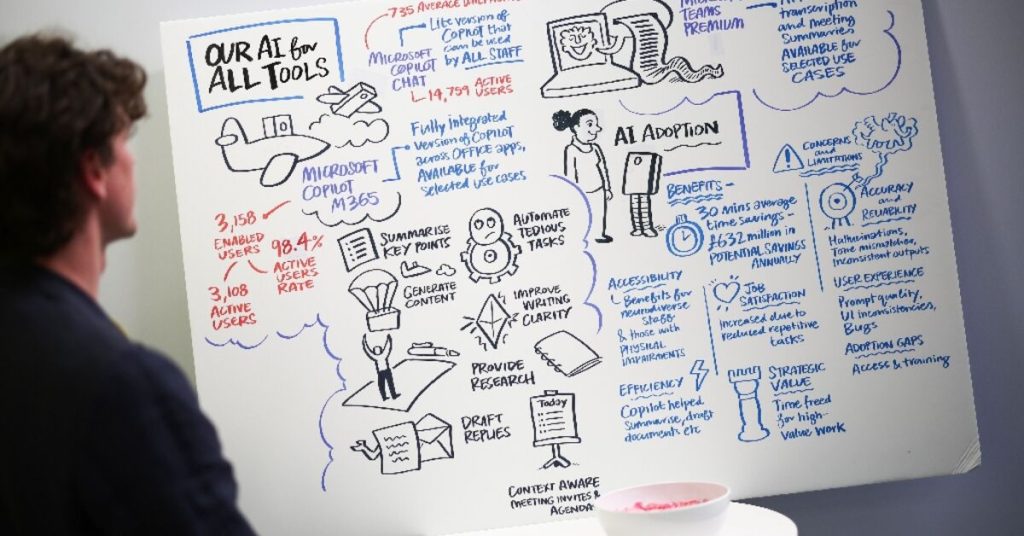 OUR AI for
ALL TOOLS
735 AVERAGE DAILY
MICROSOFT
COPILOT
CHAT
Lite version of
COPILOT that
can be used
by ALL STAFF
14,759 ACTIVE
USERS
MICROSOFT
COPILOT
M365
Fully integrated
version of COPILOT
across OFFICE apps,
AVAILABLE for
selected use cases
3,158
ENABLED
USERS
98.4%
ACTIVE
USERS
RATE
3,108
ACTIVE
USERS
SUMMARISE
KEY POINTS
AUTOMATE
TEDIOUS
TASKS
GENERATE
CONTENT
IMPROVE
WRITING
CLARITY
PROVIDE
RESEARCH
DRAFT
REPLIES
Today
CONTEXT AWARE
MEETING INVITES &
AGENDA
TEAMS
PREMIUM
transcription
and meeting
summaries
AVAILABLE for
SELECTED USE
CASES
AI ADOPTION
BENEFITS –
30 mins average
time savings –
£632 million in
POTENTIAL SAVINGS
ANNUALLY
ACCESSIBILITY
Benefits for
neurodiverse
staff
& those with
PHYSICAL
IMPAIRMENTS
JOB
SATISFACTION
Increased due to
reduced repetitive
tasks
EFFICIENCY
Copilot helped
summarise, draft
documents etc
STRATEGIC
VALUE
Time freed
for high-
value work
CONCERNS
and
LIMITATIONS
ACCURACY
and
RELIABILITY
Hallucinations,
Tone mismatches,
Inconsistent outputs
USER EXPERIENCE
Prompt quality,
UI inconsistencies,
Bugs
ADOPTION GAPS
Access & training